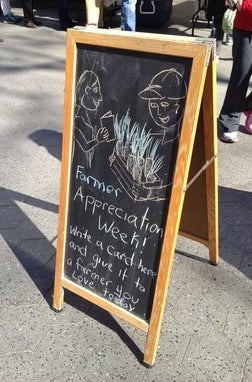 Farmer
Appreciation
Week!
Write a card here
and give it to
a farmer you
Love today